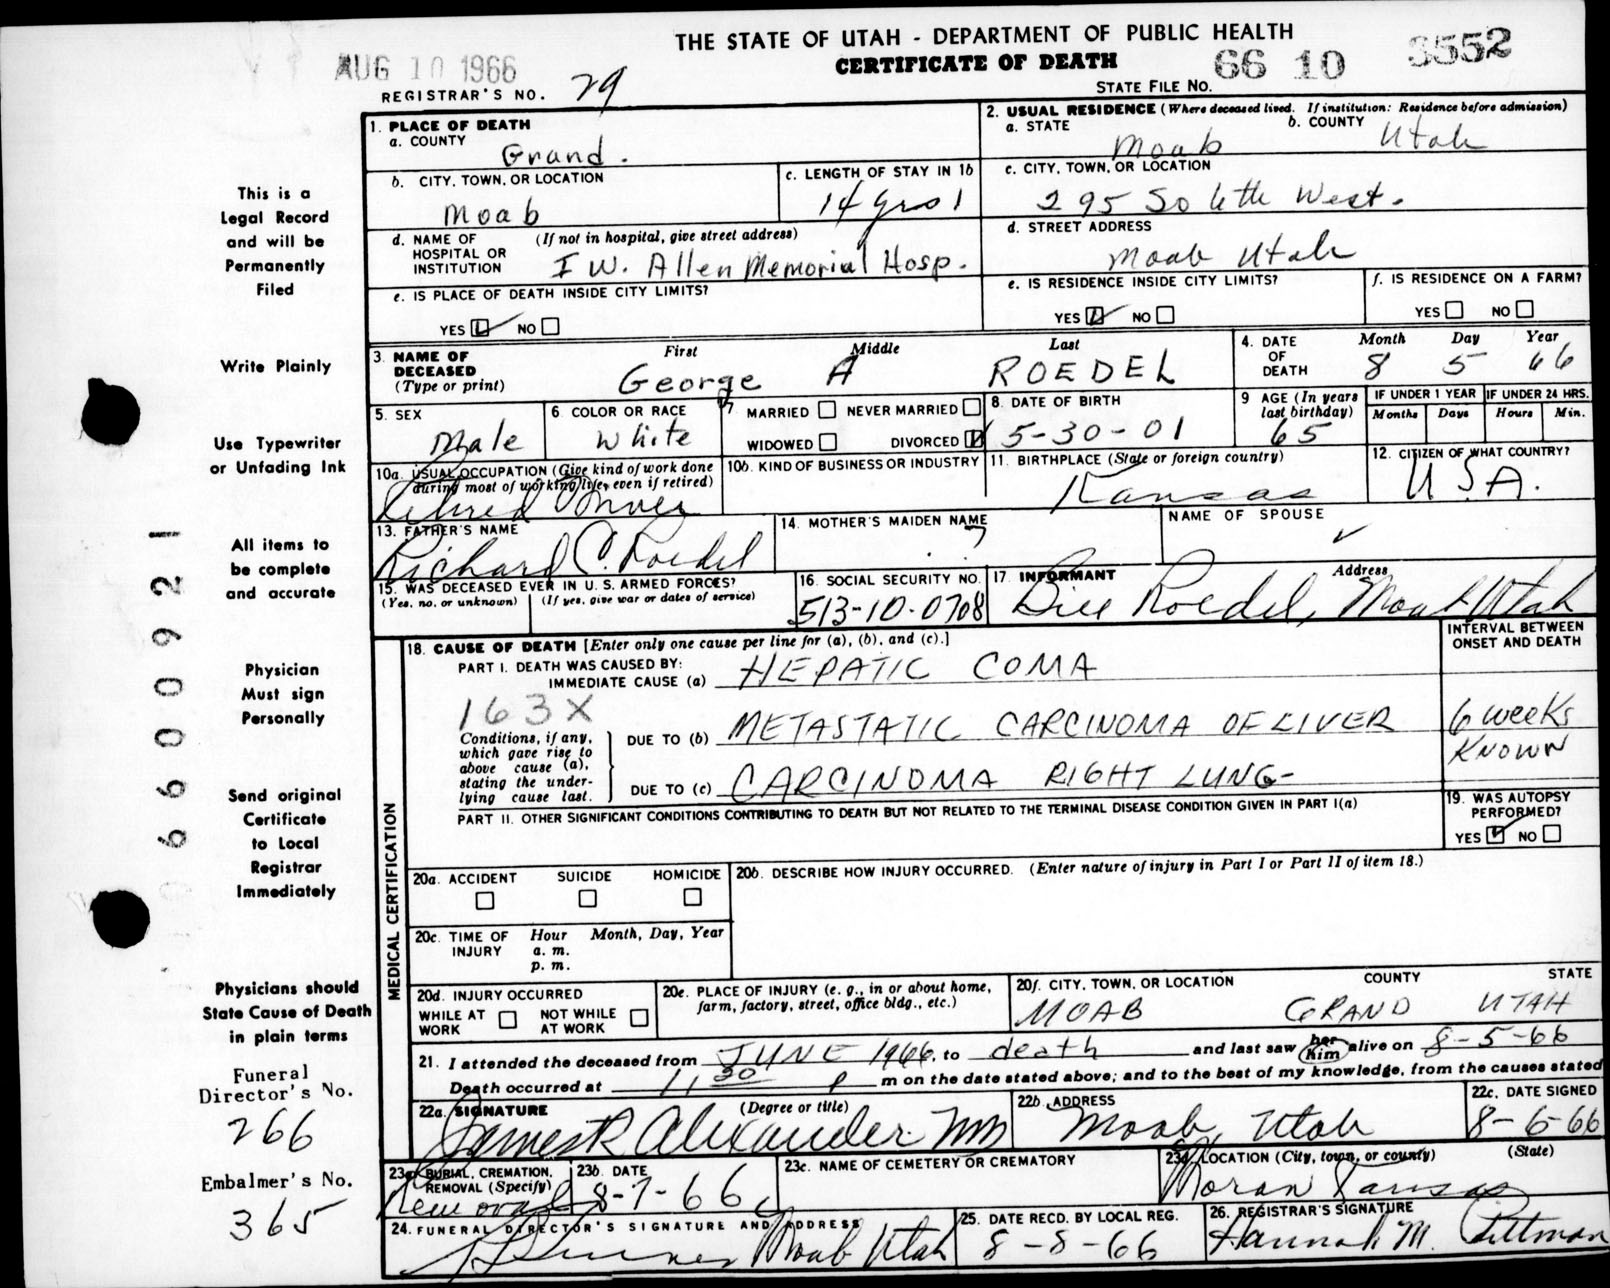 THE STATE OF UTAH - DEPARTMENT OF PUBLIC HEALTH
CERTIFICATE OF DEATH
AUG 10 1966
66 10 3552
REGISTRAR'S NO. 29
STATE FILE NO.
This is a
Legal Record
and will be
Permanently
Filed
Write Plainly
Use Typewriter
or Unfading Ink
All items to
be complete
and accurate
Physician
Must sign
Personally
Send original
Certificate
to Local
Registrar
Immediately
Physicians should
State Cause of Death
in plain terms
Funeral
Director's No.
266
Embalmer's No.
365
6600921
1. PLACE OF DEATH
a. COUNTY
Grand.
2. USUAL RESIDENCE (Where deceased lived. If institution: Residence before admission)
a. STATE Moab b. COUNTY Utah
b. CITY, TOWN, OR LOCATION
Moab
c. LENGTH OF STAY IN 1b
14 yrs
c. CITY, TOWN, OR LOCATION
295 So 6th West.
d. NAME OF HOSPITAL OR INSTITUTION (If not in hospital, give street address)
I W. Allen Memorial Hosp.
d. STREET ADDRESS
Moab Utah
e. IS PLACE OF DEATH INSIDE CITY LIMITS?
YES NO
e. IS RESIDENCE INSIDE CITY LIMITS?
YES NO
f. IS RESIDENCE ON A FARM?
YES NO
3. NAME OF DECEASED (Type or print)
First Middle Last
George A ROEDEL
4. DATE OF DEATH
Month Day Year
8 5 66
5. SEX
Male
6. COLOR OR RACE
White
7. MARRIED NEVER MARRIED
WIDOWED DIVORCED
8. DATE OF BIRTH
5-30-01
9 AGE (In years last birthday)
65
IF UNDER 1 YEAR
Months Days
IF UNDER 24 HRS.
Hours Min.
10a. USUAL OCCUPATION (Give kind of work done during most of working life, even if retired)
Retired
10b. KIND OF BUSINESS OR INDUSTRY
11. BIRTHPLACE (State or foreign country)
Kansas
12. CITIZEN OF WHAT COUNTRY?
U.S.A.
13. FATHER'S NAME
Richard C. Roedel
14. MOTHER'S MAIDEN NAME
?
NAME OF SPOUSE
15. WAS DECEASED EVER IN U. S. ARMED FORCES?
(Yes, no, or unknown) (If yes, give war or dates of service)
16. SOCIAL SECURITY NO.
513-10-0708
17. INFORMANT Address
Bill Roedel, Moab Utah
MEDICAL CERTIFICATION
18. CAUSE OF DEATH [Enter only one cause per line for (a), (b), and (c).]
INTERVAL BETWEEN ONSET AND DEATH
PART I. DEATH WAS CAUSED BY:
IMMEDIATE CAUSE (a) HEPATIC COMA
163X
Conditions, if any, which gave rise to above cause (a), stating the underlying cause last.
DUE TO (b) METASTATIC CARCINOMA OF LIVER
6 weeks
KNOWN
DUE TO (c) CARCINOMA RIGHT LUNG
PART II. OTHER SIGNIFICANT CONDITIONS CONTRIBUTING TO DEATH BUT NOT RELATED TO THE TERMINAL DISEASE CONDITION GIVEN IN PART I(a)
19. WAS AUTOPSY PERFORMED?
YES NO
20a. ACCIDENT SUICIDE HOMICIDE
20b. DESCRIBE HOW INJURY OCCURRED. (Enter nature of injury in Part I or Part II of item 18.)
20c. TIME OF INJURY Hour Month, Day, Year
a. m.
p. m.
20d. INJURY OCCURRED
WHILE AT WORK NOT WHILE AT WORK
20e. PLACE OF INJURY (e. g., in or about home, farm, factory, street, office bldg., etc.)
20f. CITY, TOWN, OR LOCATION COUNTY STATE
MOAB GRAND UTAH
21. I attended the deceased from JUNE 1966, to death and last saw her him alive on 8-5-66
Death occurred at 11 30 P m on the date stated above; and to the best of my knowledge, from the causes stated
22a. SIGNATURE (Degree or title)
James R Alexander MD
22b. ADDRESS
Moab, Utah
22c. DATE SIGNED
8-6-66
23a. BURIAL, CREMATION, REMOVAL (Specify)
Removal
23b. DATE
8-7-66
23c. NAME OF CEMETERY OR CREMATORY
23d. LOCATION (City, town, or county) (State)
Moran Kansas
24. FUNERAL DIRECTOR'S SIGNATURE AND ADDRESS
Moab Utah
25. DATE RECD. BY LOCAL REG.
8-8-66
26. REGISTRAR'S SIGNATURE
Hannah M. Pittman